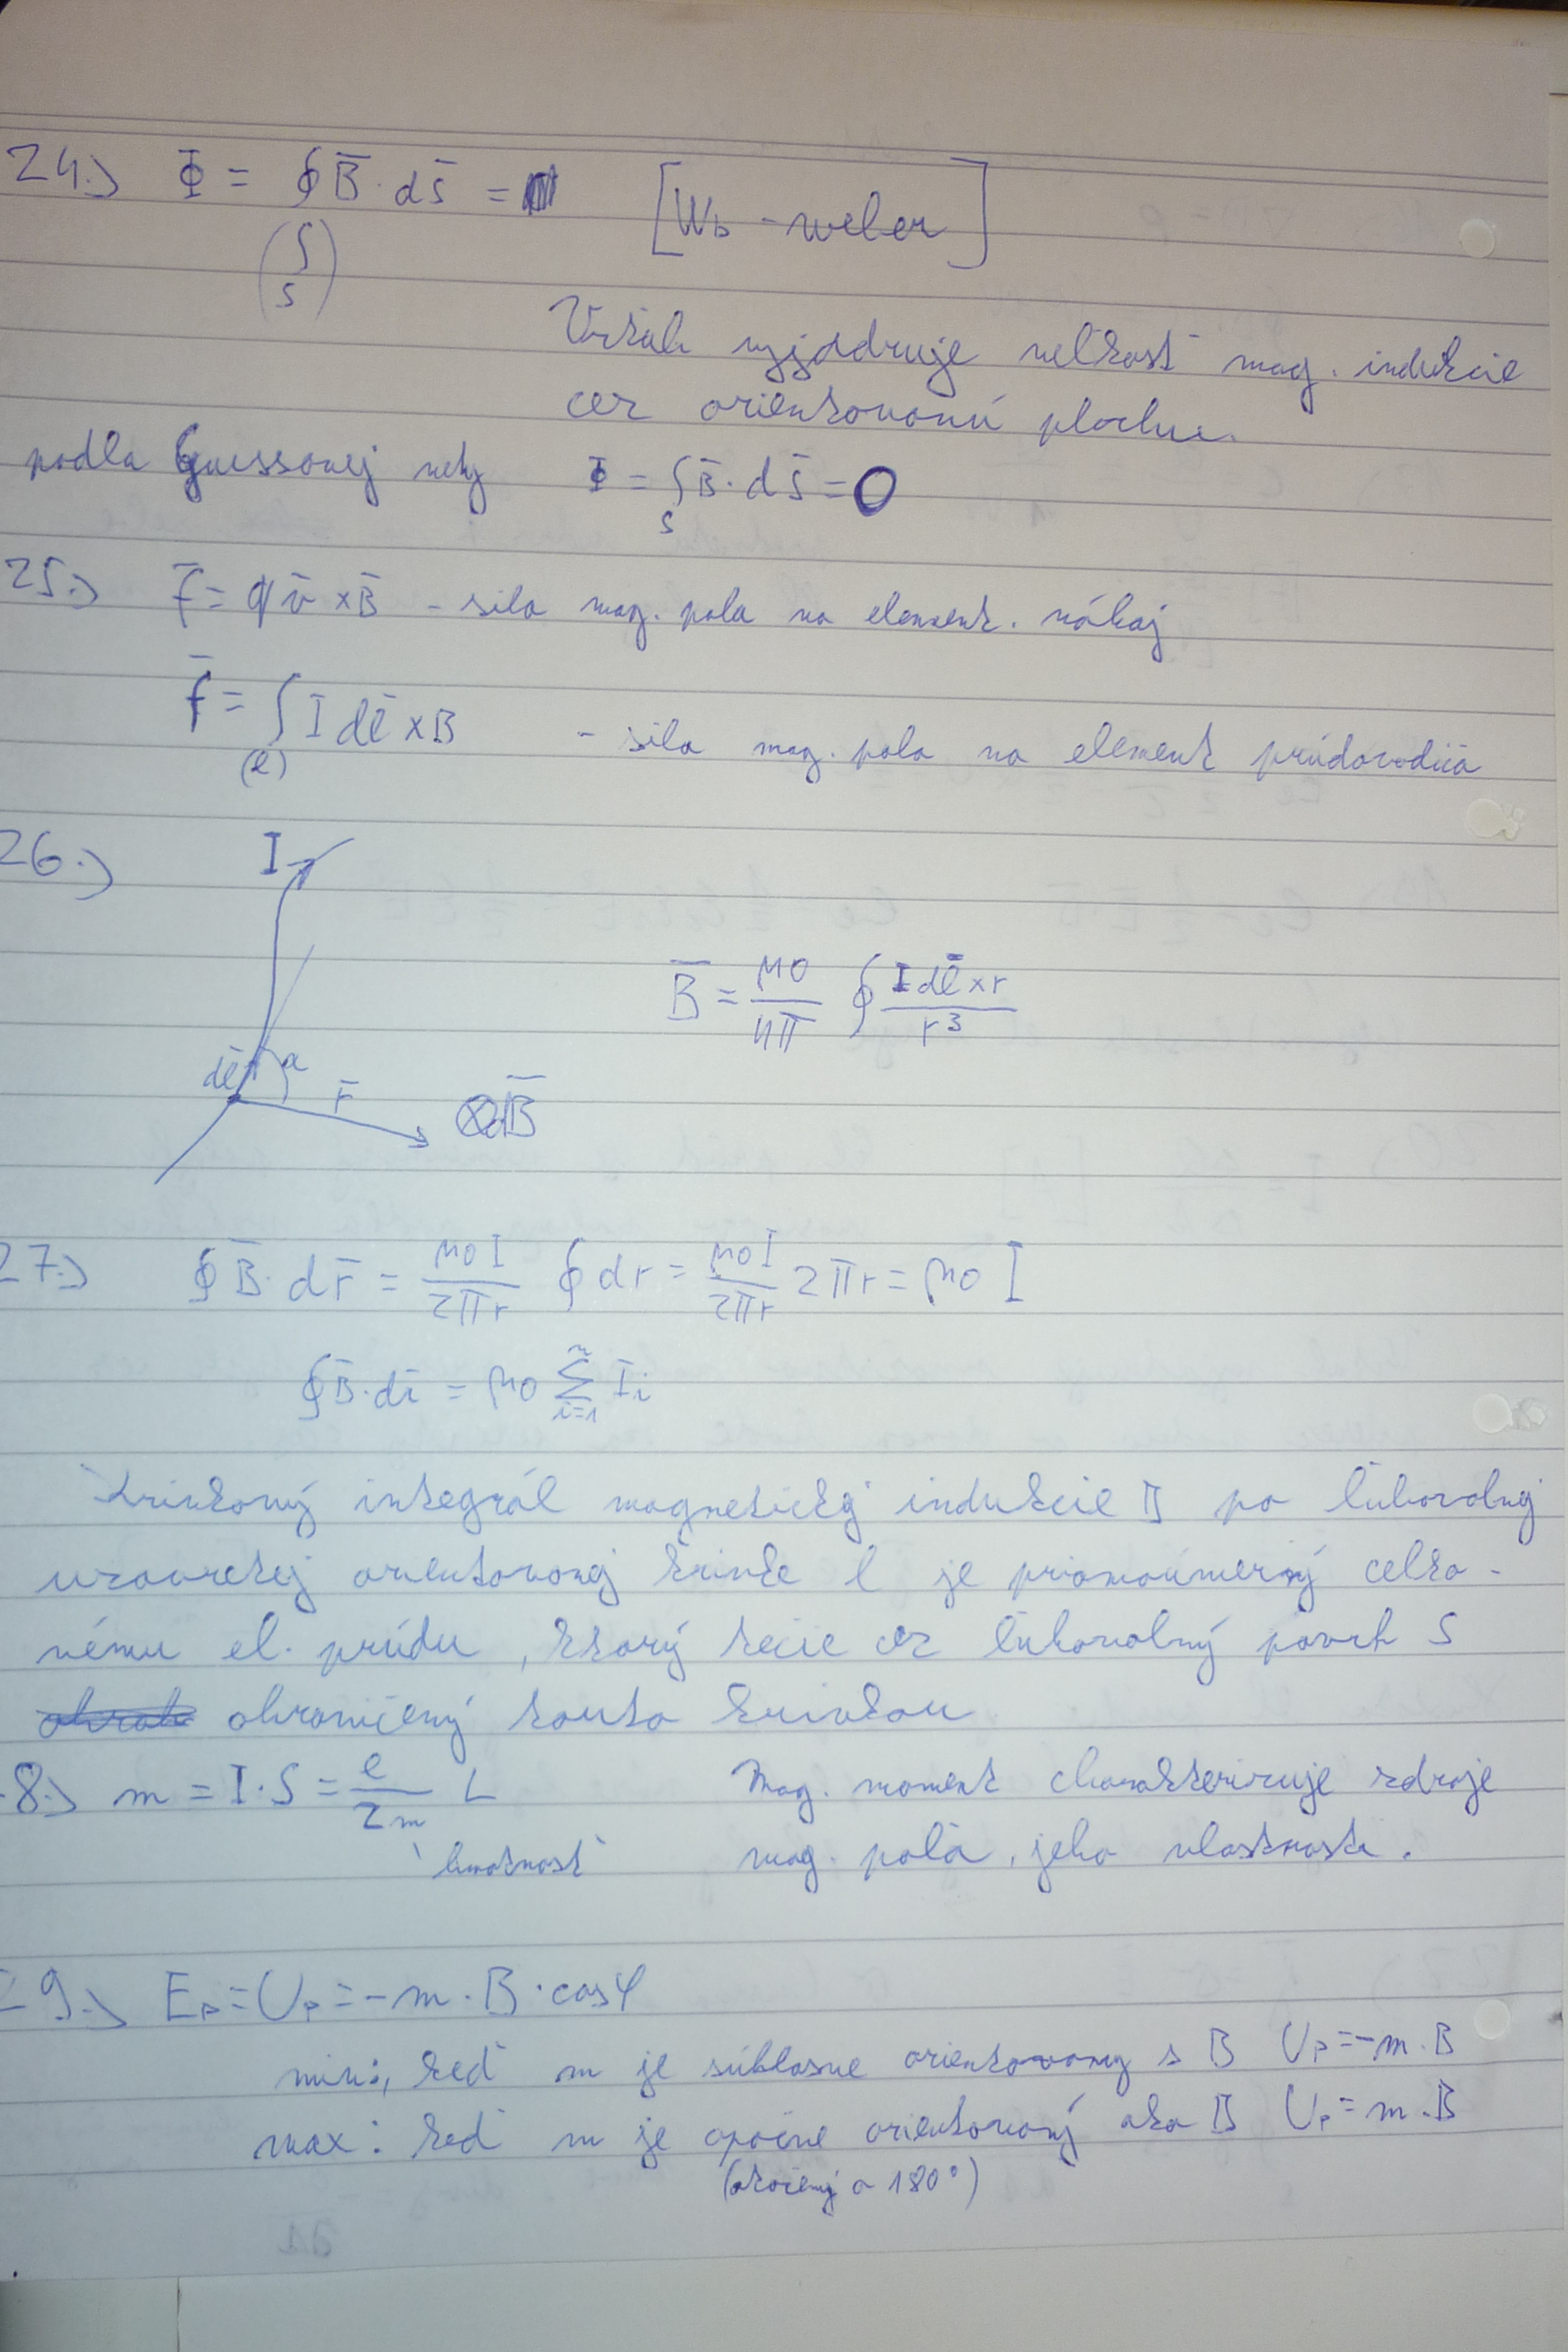 24.) Φ = ∮ B̄ · dS̄ = [Wb - weber]
(∫ S)
Vzťah vyjadruje veľkosť mag. indukcie
cez orientovanú plochu.
podla Gaussovej vety Φ = ∫ B̄ · dS̄ = 0
S
25.) F̄ = q v̄ × B̄ - sila mag. pola na element. náboj
f̄ = ∫ I dl̄ × B - sila mag. pola na element prúdovodiča
(l)
26.) I
B̄ = μ0/4π ∮ I dl̄ × r / r³
dl̄ α r̄ ⊗ dB̄
27.) ∮ B̄ · dr̄ = μ0 I / 2πr ∮ dr = μ0 I / 2πr 2πr = μ0 I
∮ B̄ · dl̄ = μ0 Σ Ii
n i=1
Krivkový integrál magnetickej indukcie B po ľubovolnej
uzavretej orientovanej krivke l je priamoúmerný celko-
vému el. prúdu, ktorý tečie cez ľubovolný povrch S
ohraničený touto krivkou
8.) m = I · S = e/2m L Mag. moment charakterizuje zdroje
hmotnosť mag. pola, jeho vlastnosti.
29.) Ep = Up = - m · B · cos φ
min:, keď m je súhlasne orientovaný s B Up = - m · B
max: keď m je opačne orientovaný ako B Up = m · B
(otočený o 180°)